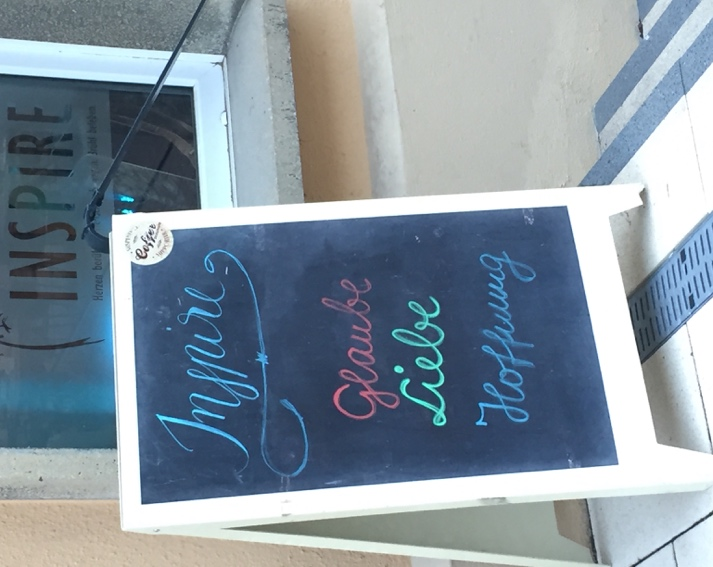 INSPIRE
Coffee
Inspire
Glaube
Liebe
Hoffnung